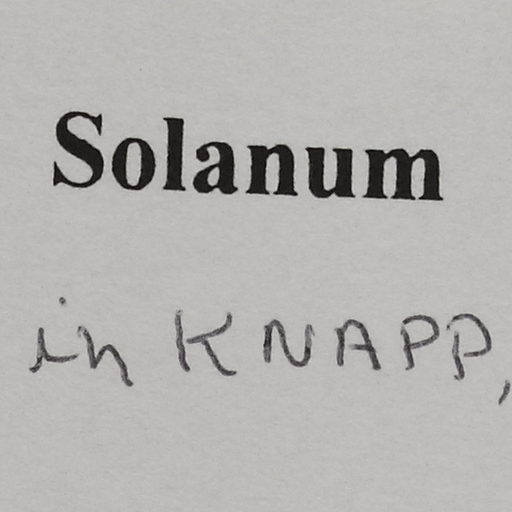 Solanum
in KNAPP,